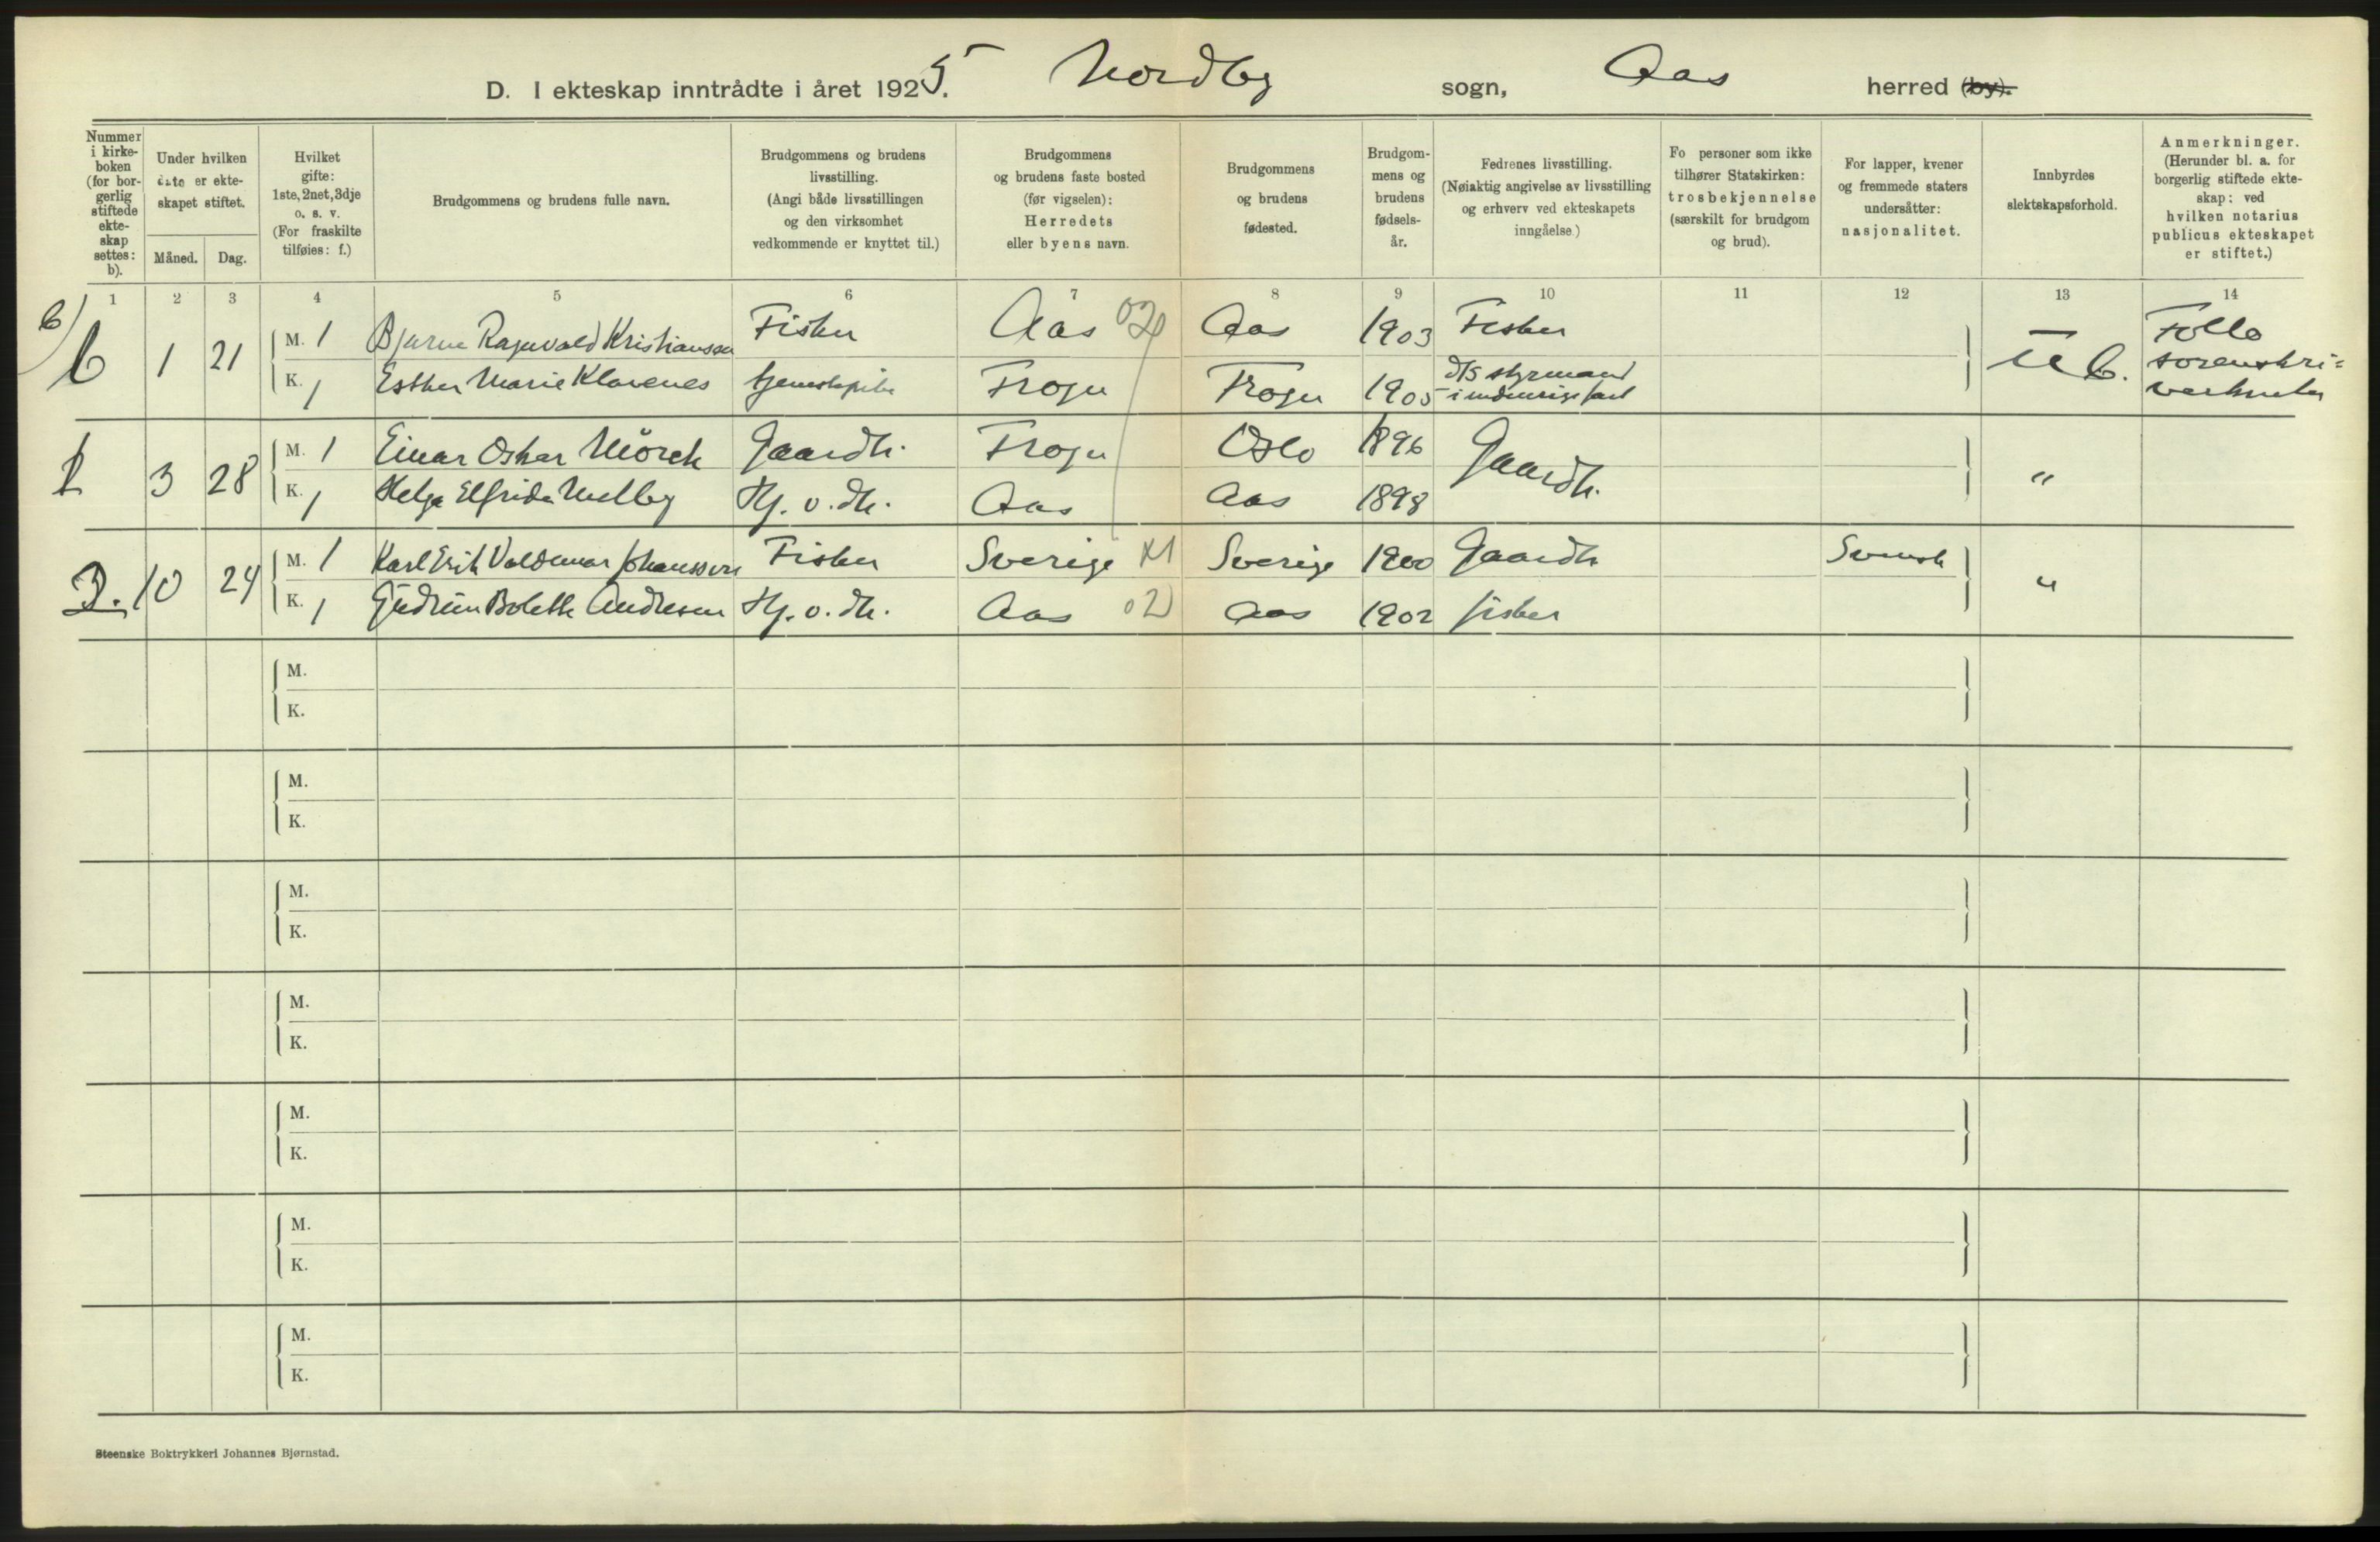 D. I ekteskap inntrådte i året 1925. Nordby sogn, Aas herred (by).
Nummer i kirke-boken (for bor-gerlig stiftede ekte-skap settes: b).
Under hvilken dato er ekte-skapet stiftet.
Måned. Dag.
Hvilket gifte: 1ste, 2net, 3dje o. s. v. (For fraskilte tilføies: f.)
Brudgommens og brudens fulle navn.
Brudgommens og brudens livsstilling. (Angi både livsstillingen og den virksomhet vedkommende er knyttet til.)
Brudgommens og brudens faste bosted (før vigselen): Herredets eller byens navn.
Brudgommens og brudens fødested.
Brudgom-mens og brudens fødsels-år.
Fedrenes livsstilling. (Nøiaktig angivelse av livsstilling og erhverv ved ekteskapets inngåelse.)
Fo personer som ikke tilhører Statskirken: trosbekjennelse (særskilt for brudgom og brud).
For lapper, kvener og fremmede staters undersåtter: nasjonalitet.
Innbyrdes slektskapsforhold.
Anmerkninger. (Herunder bl. a. for borgerlig stiftede ekte-skap: ved hvilken notarius publicus ekteskapet er stiftet.)
1 2 3 4 5 6 7 8 9 10 11 12 13 14
b) b 1 21 M. 1 Bjarne Ragnvald Kristianssen Fisker Aas 02 Aas 1903 Fisker U b. Follo sorenskri=
K. 1 Esther Marie Klavenes tjenestepike Frogn Frogn 1905 D/S styrmand i indenrigs fart verkontor
1 3 28 M. 1 Einar Oskar Mörch Gaardbr. Frogn Oslo 1896 Gaardbr. "
K. 1 Helga Elfrida Melby Hj. v. dtr. Aas Aas 1898
2. 10 24 M. 1 Karl Erik Valdemar Johansson Fisker Sverige X1 Sverige 1900 Gaardbr Svensk "
K. 1 Gudrun Bolette Andresen Hj. v. dtr. Aas 02 Aas 1902 fisker
M.
K.
M.
K.
M.
K.
M.
K.
M.
K.
M.
K.
M.
K.
Steenske Boktrykkeri Johannes Bjørnstad.